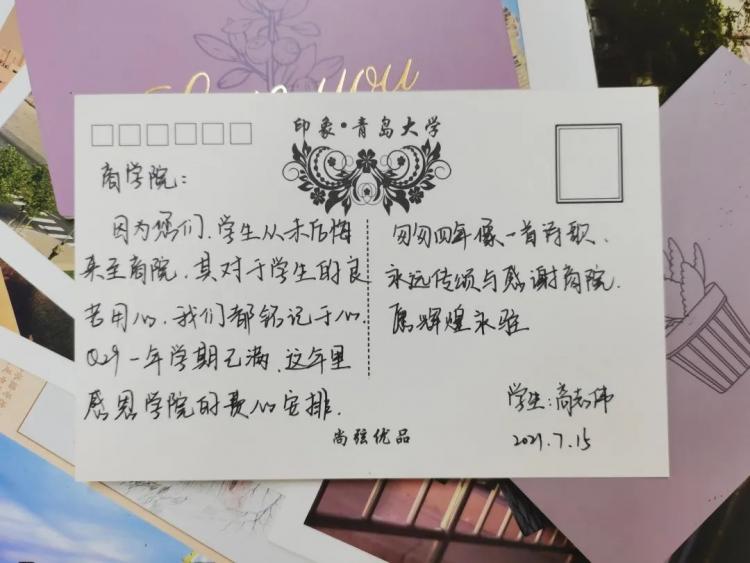 love you
印象·青岛大学
商学院：
因为您们，学生从未后悔
来至商院，其对于学生的良
苦用心，我们都铭记于心．
029一年学期已满，这年里
感恩学院的费心安排．
匆匆四年像一首诗歌，
永远传颂与感谢商院．
愿辉煌永驻
学生：高志伟
2021.7.15
尚弦优品